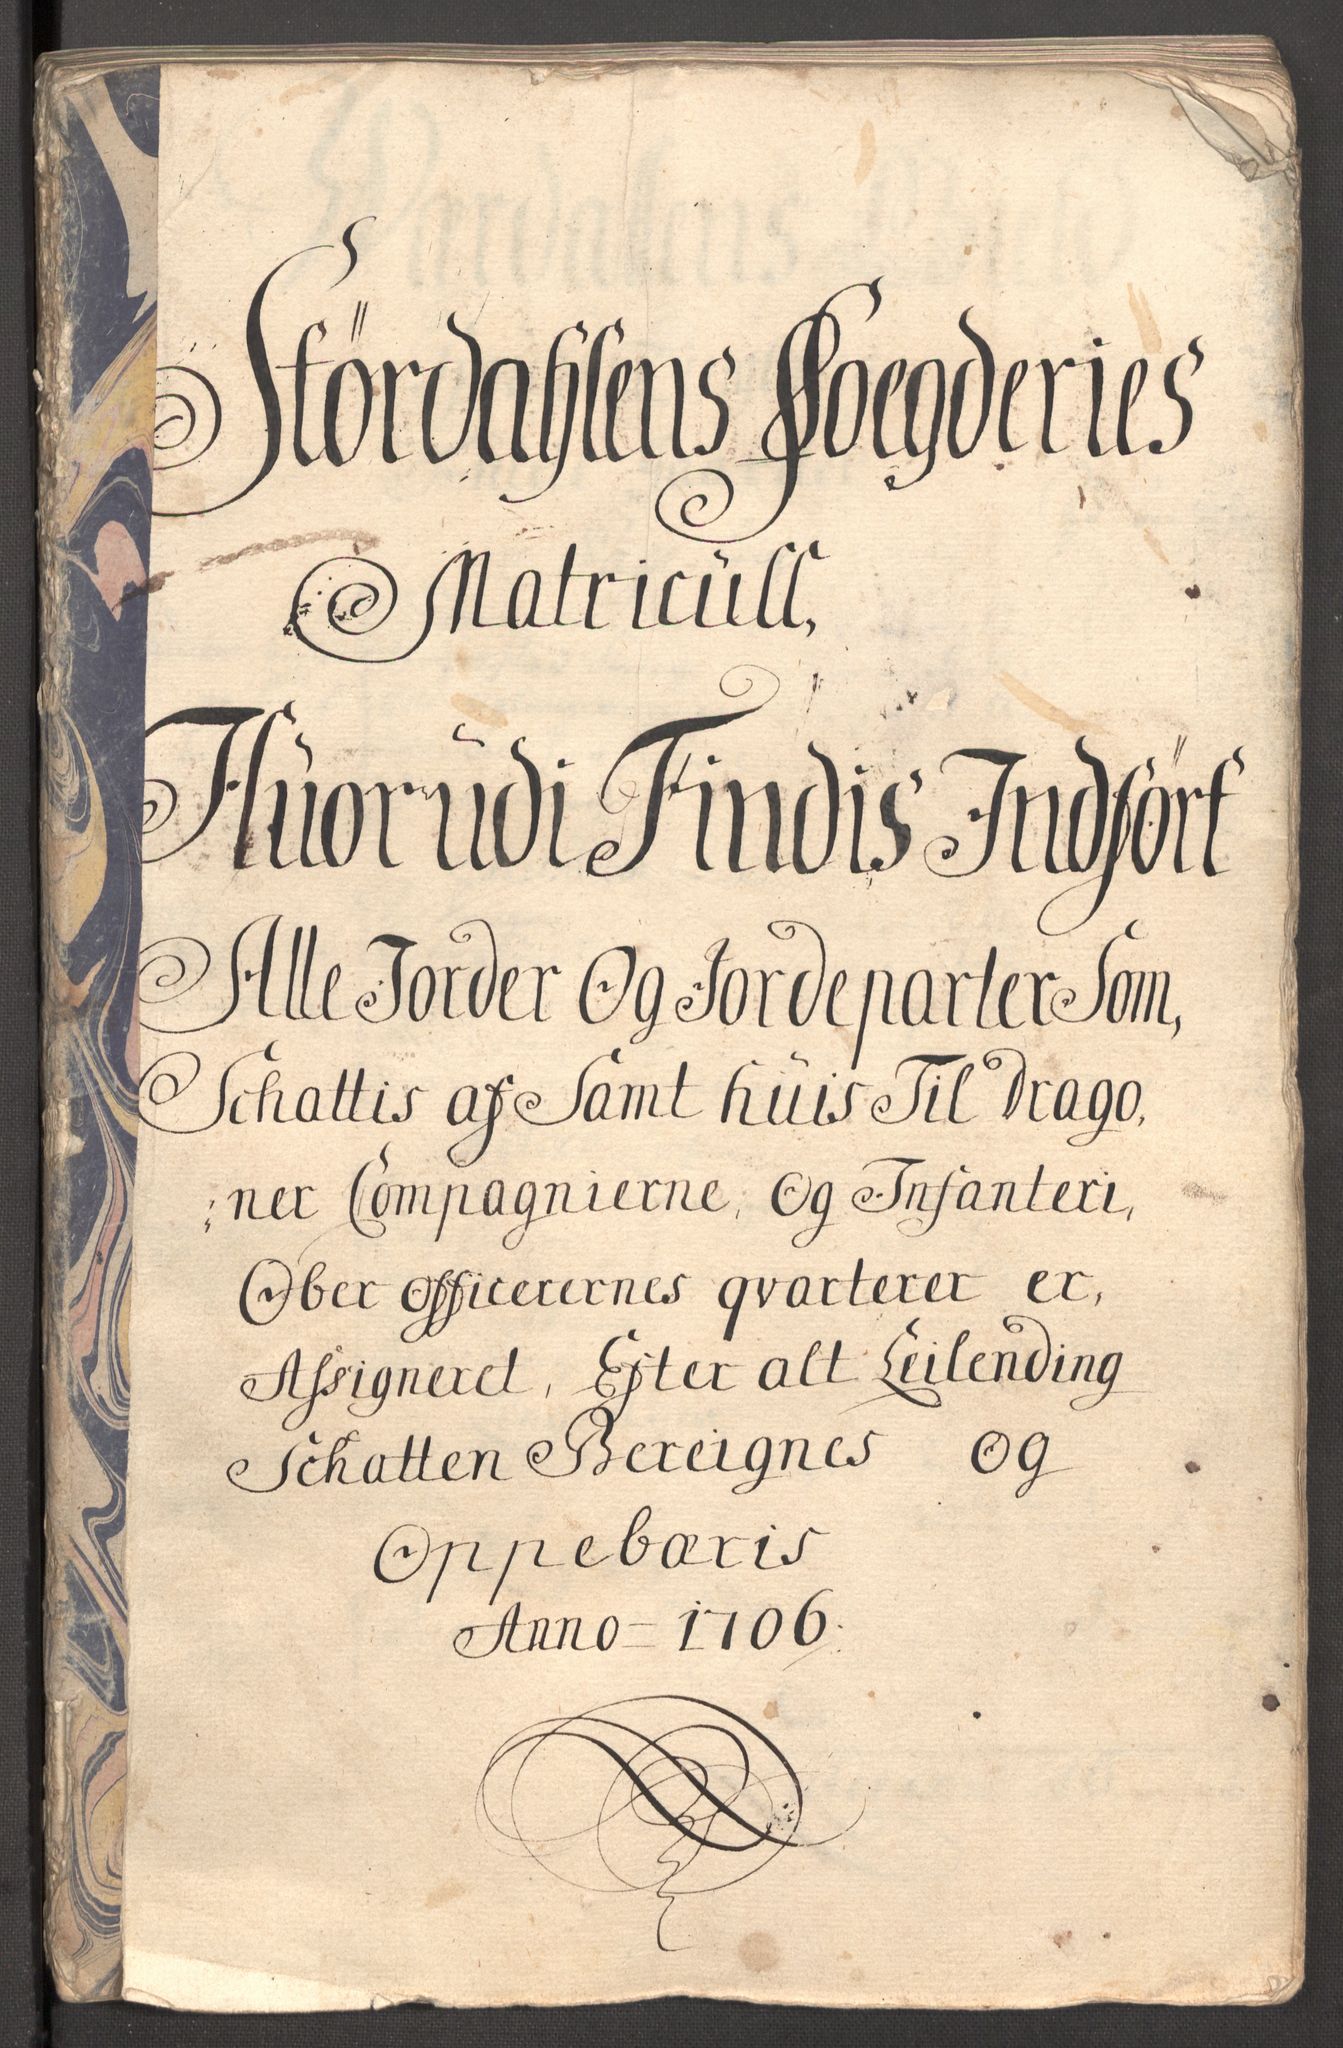 Stördahlens Foegderies
Matricüll,
Hüorüdi Findis Indfört
Alle Jorder Og Jordeparter Som,
Schattis af Samt hüis Til Drago,
:ner Compagnierne, Og Infanteri,
Ober officerernes qvarterer er,
Assigneret, Efter alt Leilending
Schatten Bereignes Og
Oppebæris
Anno = 1706.